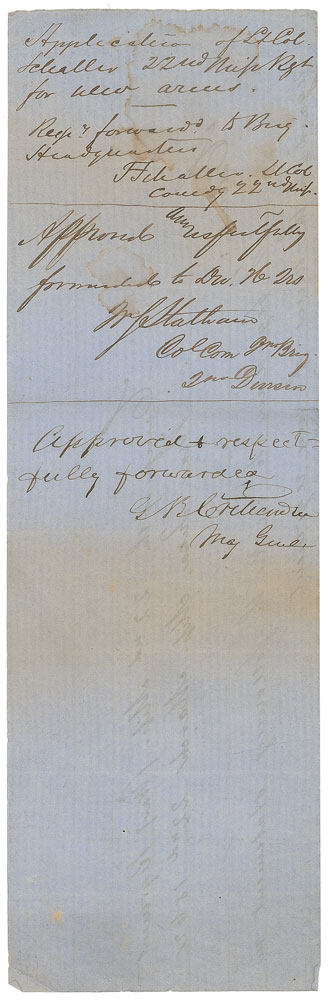 Application of Lt Col.
Schaller 22nd Miss Rgt
for new arms.
Resp.y forward'd to Brig.
Headquarters
F Schaller. Lt Col
Comdg 22nd Miss.
Approved and respectfully
forwarded to Div. H Qrs
W S Statham
Col Com Brig.
2nd Division
Approved & respect-
fully forwarded
G B Crittenden
Maj Genl